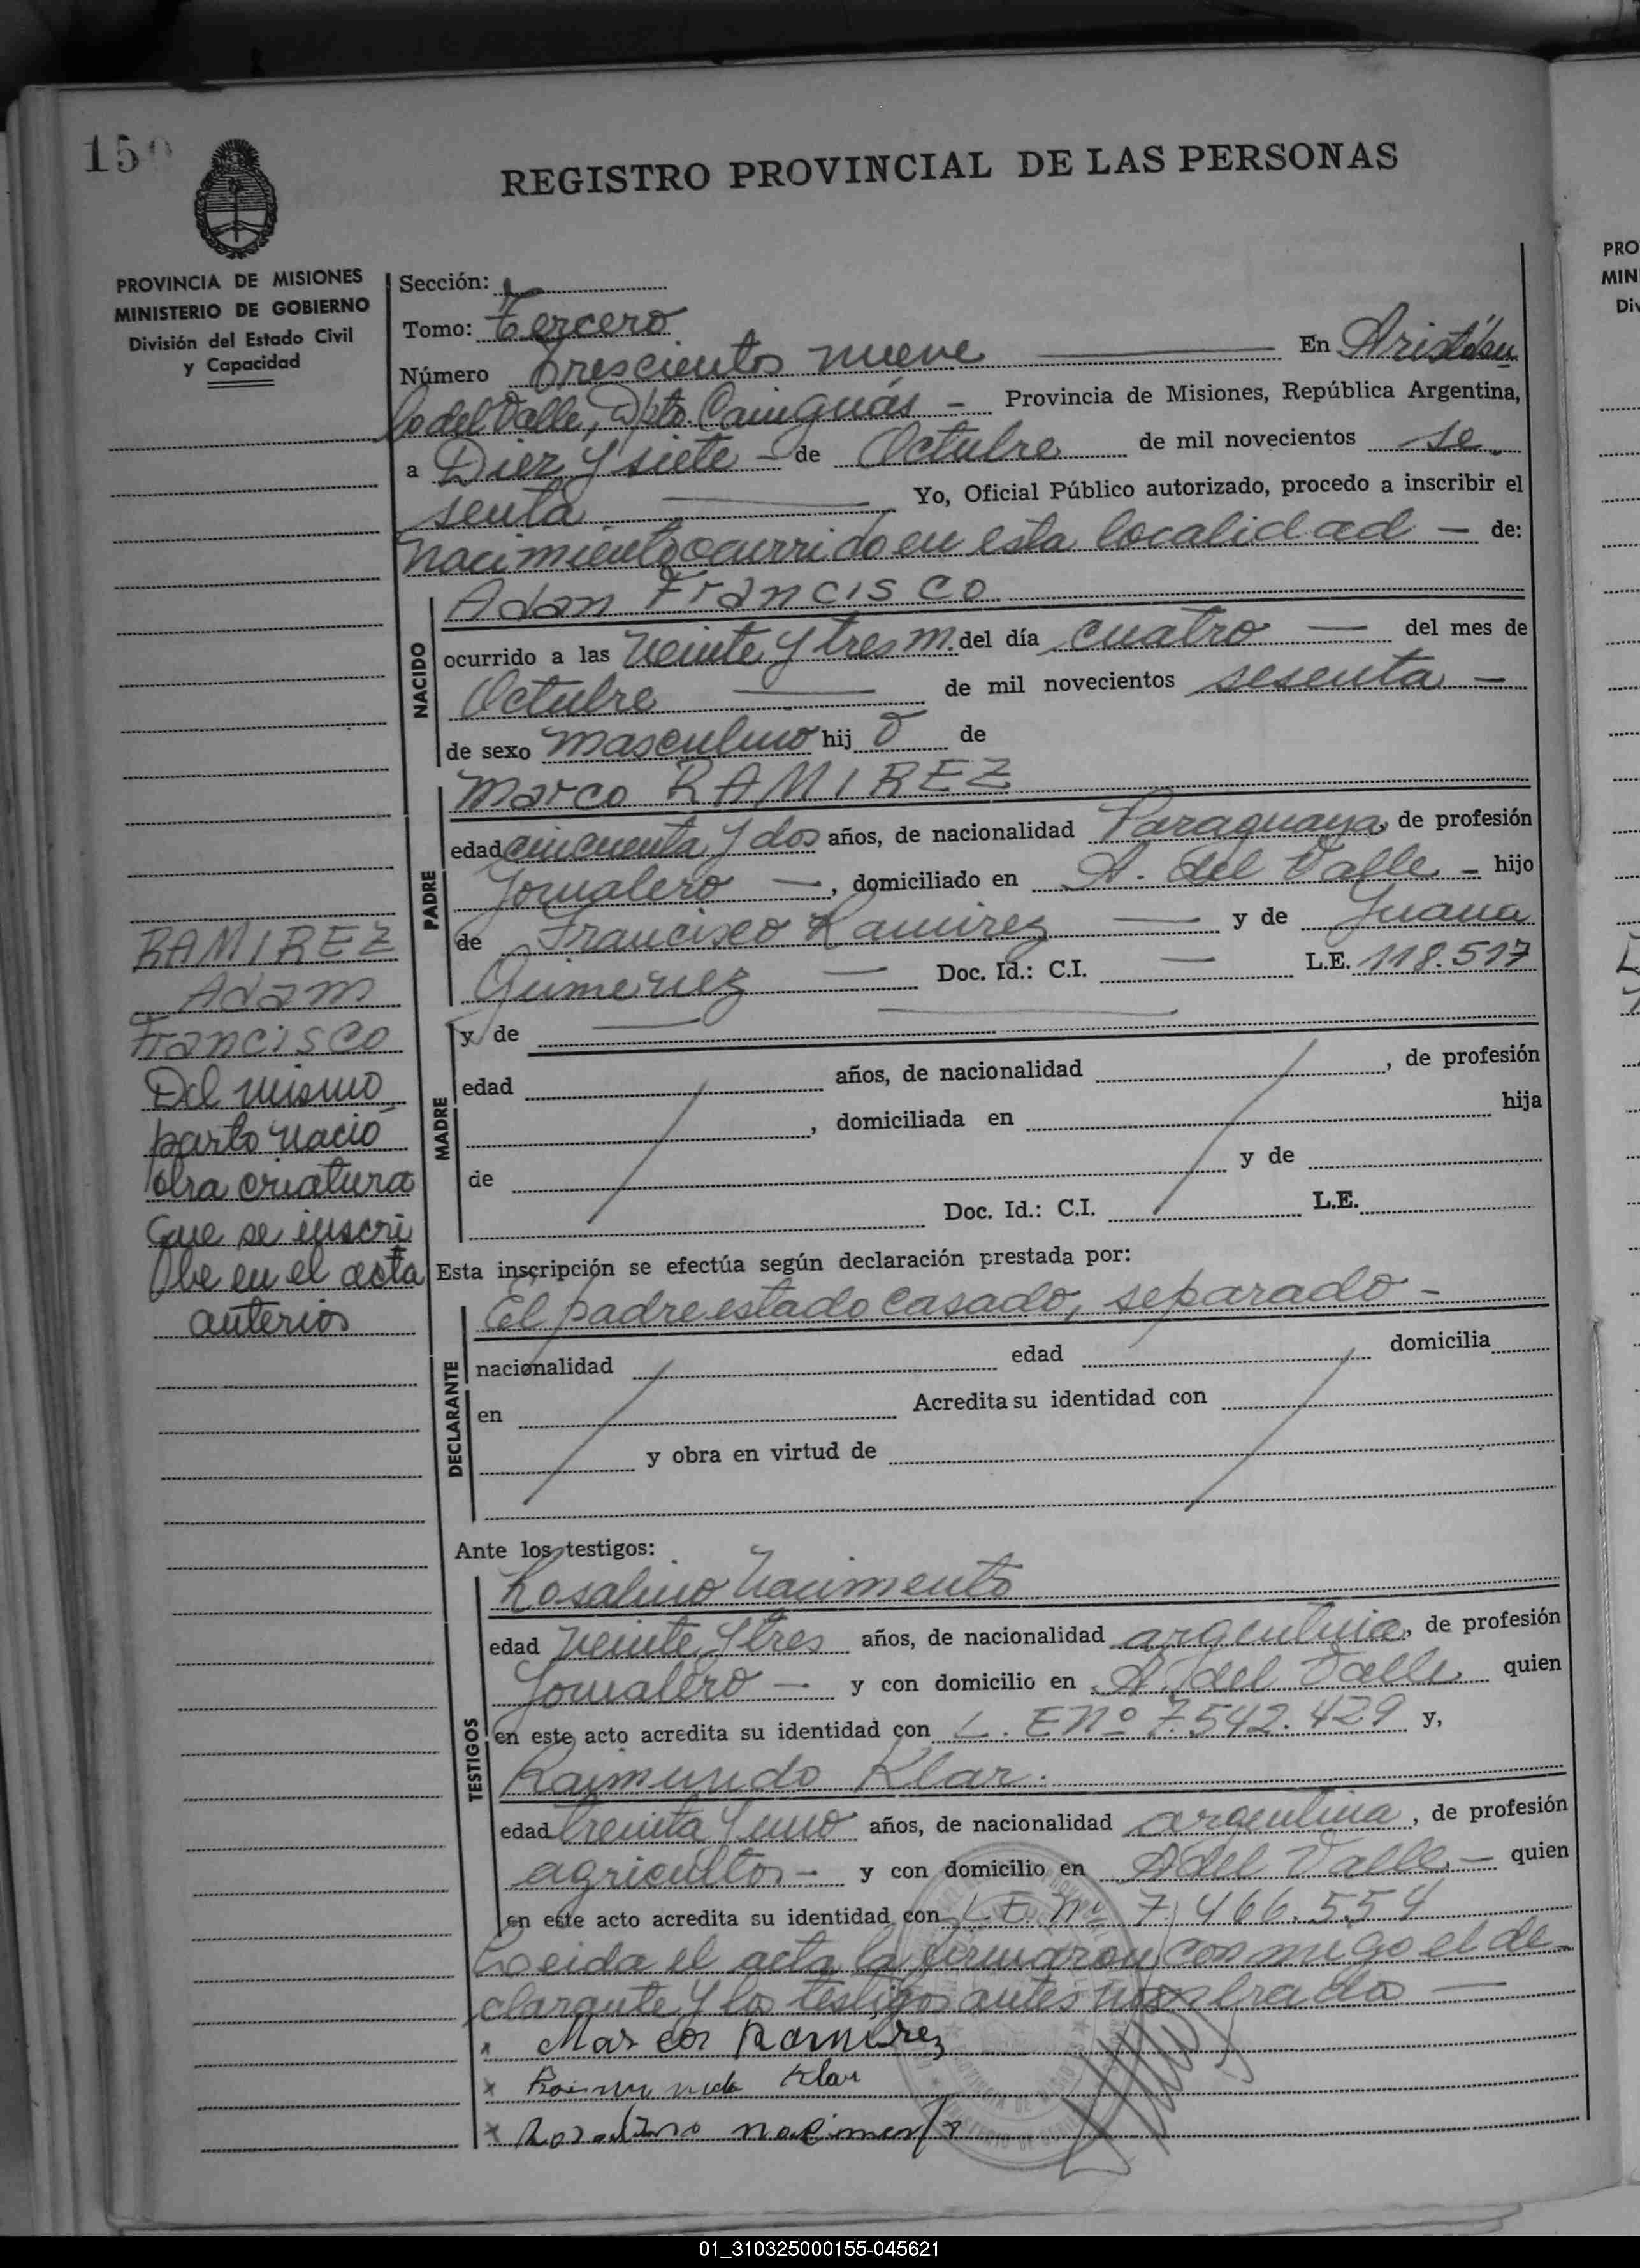 150
REGISTRO PROVINCIAL DE LAS PERSONAS
PROVINCIA DE MISIONES
MINISTERIO DE GOBIERNO
División del Estado Civil
y Capacidad
Sección:
Tomo: Tercero
Número Trescientos nueve En Aristóbu
lo del Valle, Dpto. Cainguás - Provincia de Misiones, República Argentina,
a Diez y siete - de Octubre de mil novecientos se
senta Yo, Oficial Público autorizado, procedo a inscribir el
nacimiento ocurrido en esta localidad - de:
NACIDO
Adan Francisco
ocurrido a las veinte y tres m. del día cuatro - del mes de
Octubre de mil novecientos sesenta -
de sexo masculino hij o de
PADRE
Marco RAMIREZ
edad cincuenta y dos años, de nacionalidad Paraguaya, de profesión
Jornalero -, domiciliado en A. del Valle - hijo
de Francisco Ramirez - y de Juana
Gimenez - Doc. Id.: C.I. - L.E. 118.517
MADRE
y de
edad años, de nacionalidad , de profesión
, domiciliada en hija
de y de
Doc. Id.: C.I. L.E.
RAMIREZ
Adam
Francisco
Del mismo
parto nació
otra criatura
que se inscri
be en el acta
anterior
Esta inscripción se efectúa según declaración prestada por:
DECLARANTE
El padre estado casado, separado -
nacionalidad edad domicilia
en Acredita su identidad con
y obra en virtud de
Ante los testigos:
TESTIGOS
Rosalino Nacimento
edad veinte y tres años, de nacionalidad argentina, de profesión
Jornalero - y con domicilio en A. del Valle quien
en este acto acredita su identidad con L. E Nº 7.542.429 y,
Raimundo Klar.
edad treinta y uno años, de nacionalidad argentina, de profesión
agricultor - y con domicilio en A del Valle - quien
en este acto acredita su identidad con L. E. Nº 7.466.554
Leida el acta la firmaron conmigo el de-
clarante y los testigos antes nombrados -
Marcos Ramirez
x Raimundo Klar
x Rosalino nacimento
PRO
MIN
Div
01_310325000155-045621